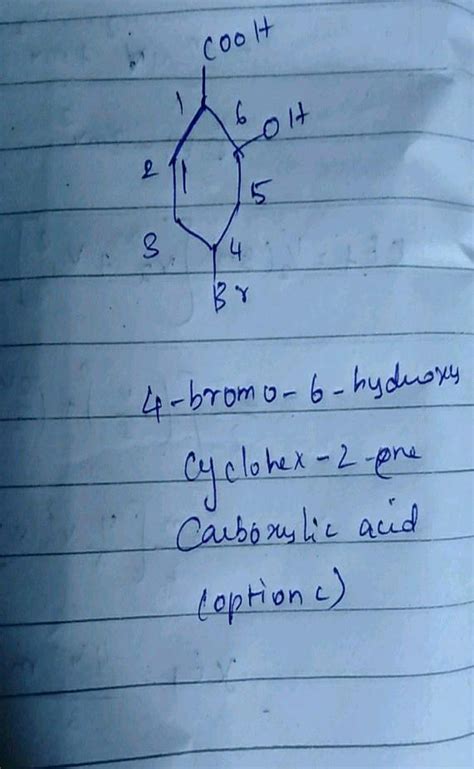 COOH
1
6
OH
2
5
3
4
Br
4-bromo-6-hydroxy
Cyclohex-2-ene
Carboxylic acid
(option c)